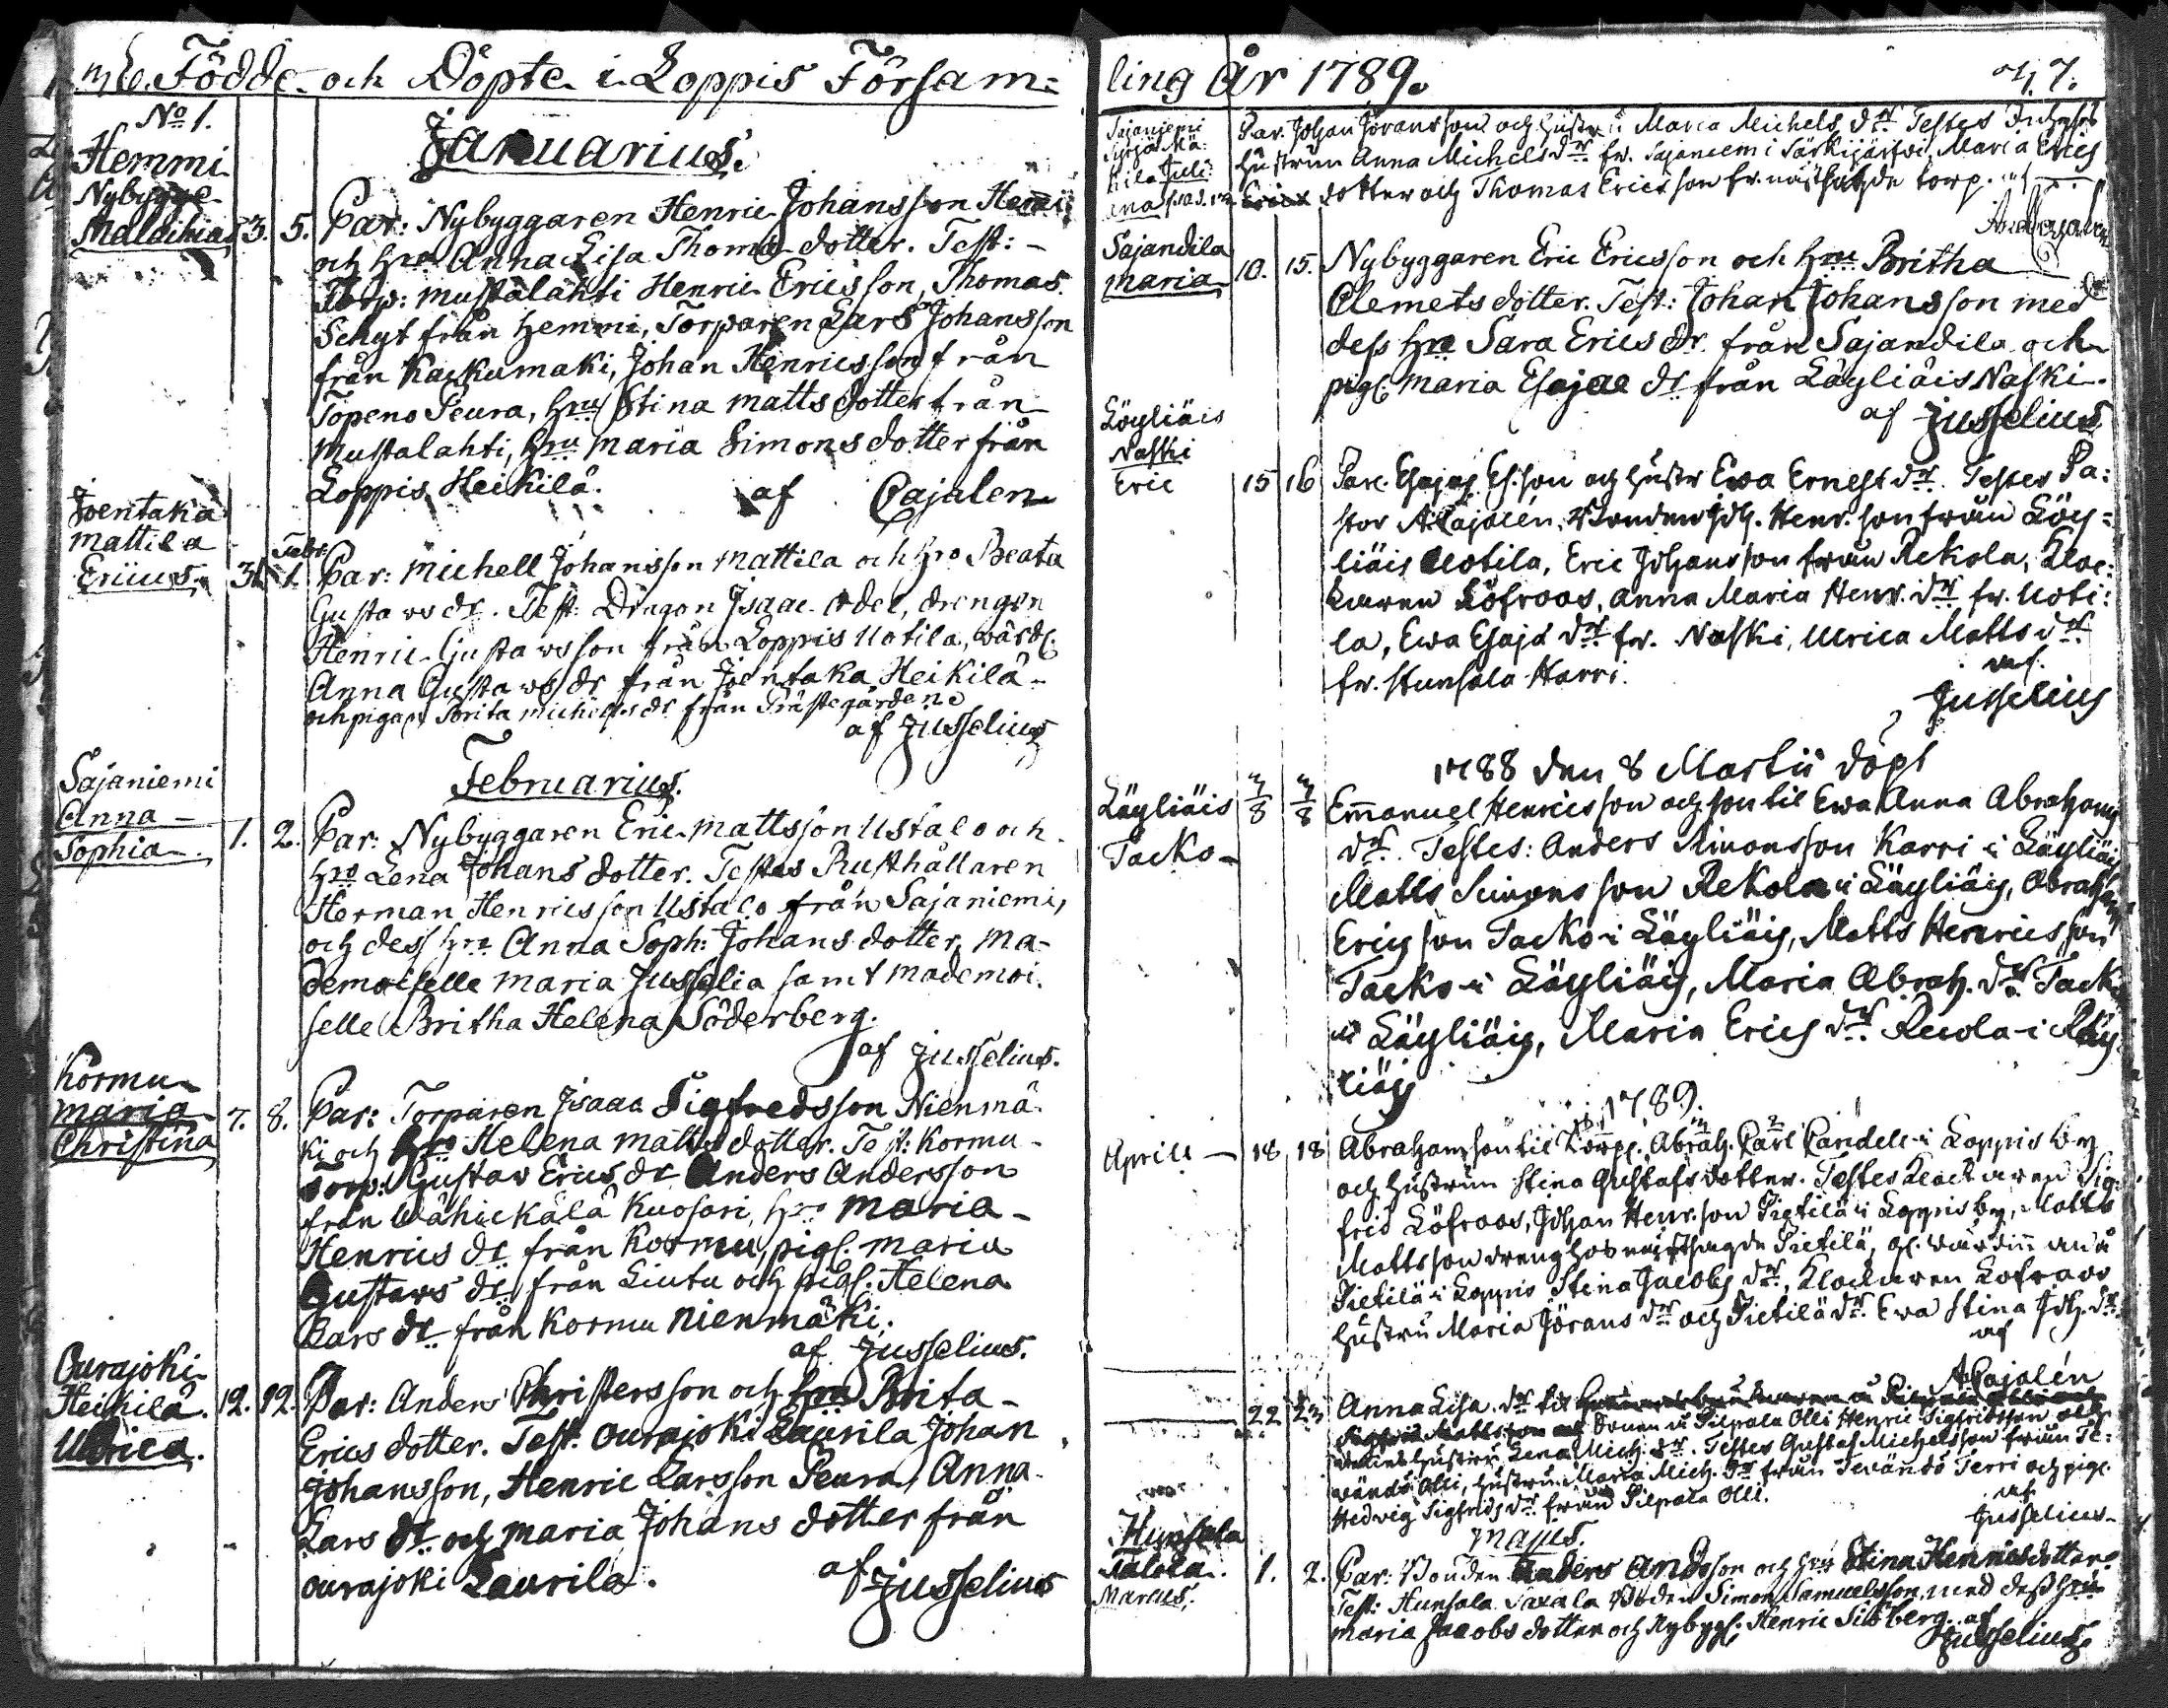 Födde och Döpte i Loppis Församling
No 1.
Januarius.
Hemmi
Nybygge
Malachias 3. 5. Par: Nybyggaren Henric Johansson Hemi
och hro Anna Lisa Thomæ dotter. Test: -
Torp: Mustalahti Henric Ericsson, Thomas
Schyt från Hemmi, Torparen Lars Johansson
från Kaukumaki, Johan Henricsson från
Topeno Seura, hru Stina Matts dotter från
Mustalahti, hru Maria Simons dotter från
Loppis Heikilä. af Cajalen
Joentaka
Mattila
Ericus. 31. Febr. 1. Par: Michell Johansson Mattila och hro Beata
Gustaws dr. Test: Dragon Isaac Odel, drengen
Henric Gustawsson från Loppis Uotila, wärd:
Anna Gustaws dr från Joentaka Heikilä
och pigan Brita Michels dr från Prästegården
af Jusselius
Februarius.
Sajaniemi
Anna -
Sophia. 1. 2. Par: Nybyggaren Eric Mattsson Ustalo och
hro Lena Johans dotter. Testes Rusthållaren
Herman Henricsson Ustalo från Sajaniemi,
och dess hro Anna Soph: Johans dotter, Ma-
demoiselle Maria Jusselia samt Mademoi-
selle Britha Helena Söderberg.
af Jusselius.
Kormu
Maria
Christina 7. 8. Par: Torparen Isaac Sigfredsson Nienmä-
ki och hro Helena Matts dotter. Test: Kormu -
Torp: Gustav Erics dr Anders Andersson
från Wähickälä Kuosari, hro Maria -
Henrics dr från Kormu, pig: Maria
Gustaws dr från Liutu och pig: Helena
Lars dr från Kormu Nienmäki.
af Jusselius.
Ourajoki
Heikilä.
Ulrica. 12. 12. Par: Anders Christersson och hru Brita -
Erics dotter. Test: Ourajoki Laurila Johan
Johansson, Henric Larsson Peura, Anna
Lars dr och Maria Johans dotter från
Ourajoki Laurila. af Jusselius
ling År 1789. 7.
Sajaniemi
Par. Johan Jöransson och hustru Maria Michels dr Testes
hustrun Anna Michels dr fr. Sajaniemi Särkijärfvi, Maria Erics
dotter och Thomas Ericsson fr. näst sagde torp. af
Sajandila
Maria 10. 15. Nybyggaren Eric Ericsson och hru Britha
Clemets dotter. Test: Johan Johansson med
dess hro Sara Erics dr. från Sajandila och
pig: Maria Esajae dr från Läyliäis Naski.
af Jusselius
Löyliäis
Naski
Eric 15 16 Par. Esajas Es.son och hustr Ewa Ernest dr. Testes Pa:
stor A Cajalén, Bonden Joh. Henr. son från Löy=
liäis Uotila, Eric Johansson från Rekola, Kloc:
karen Löfroos, Anna Maria Henr. dr fr. Uoti:
la, Ewa Esajæ dr fr. Naski, Ulrica Matts dr
fr. Hunsala Harri.
af
Jusselius
1788 den 8 Martii döpt
Läyliäis
Tacko - 3/8 3/8 Emanuel Henricsson och son til Ewa Anna Abrahams
dr. Testes: Anders Simonsson Karri i Läyliäis
Matts Simonsson Rekola i Läyliäis, Abraham
Ericsson Tacko i Läyliäis, Matts Henricsson
Tacko i Läyliäis, Maria Abrah. dr Tacko
i Läyliäis, Maria Erics dr. i Läy
liäis
1789.
Aprill - 18 18 Abraham son til Abrah. Carl Randell i Loppis by
och hustrun Stina Gustafs dotter. Testes Klockaren Sig-
frid Löfroos, Johan Henr. son Pietilä i Loppis by, Matts
Mattsson dreng hos näst sagde Pietilä, på
Pietilä i Loppis Stina Jacobs dr, Klockaren Lofroos
hustru Maria Jörans dr och Pietilä dr. Ewa Stina Joh. dr.
af
A Cajalén
22 23 Anna Lisa dr til
Bonden i Pilpala Olli Henric Sigfridsson och
hustru Lena Mich. dr. Testes Gustaf Michelsson från Te:
wändö Olli, hustrun Maria Mich. dr från Tewändö Terri och pig:
Hedwig Sigfrids dr från Pilpala Olli.
af
Jusselius
Majus.
Hunsala
Talola.
Marcus. 1. 2. Par: Bonden Anders Andsson och hru Stina Henrics dotter
Test: Hunsala Saxala Bonden Simon Samuelsson med dess hru
Maria Jacobs dotter och Nybygg: Henric Silfberg. af
Jusselius.